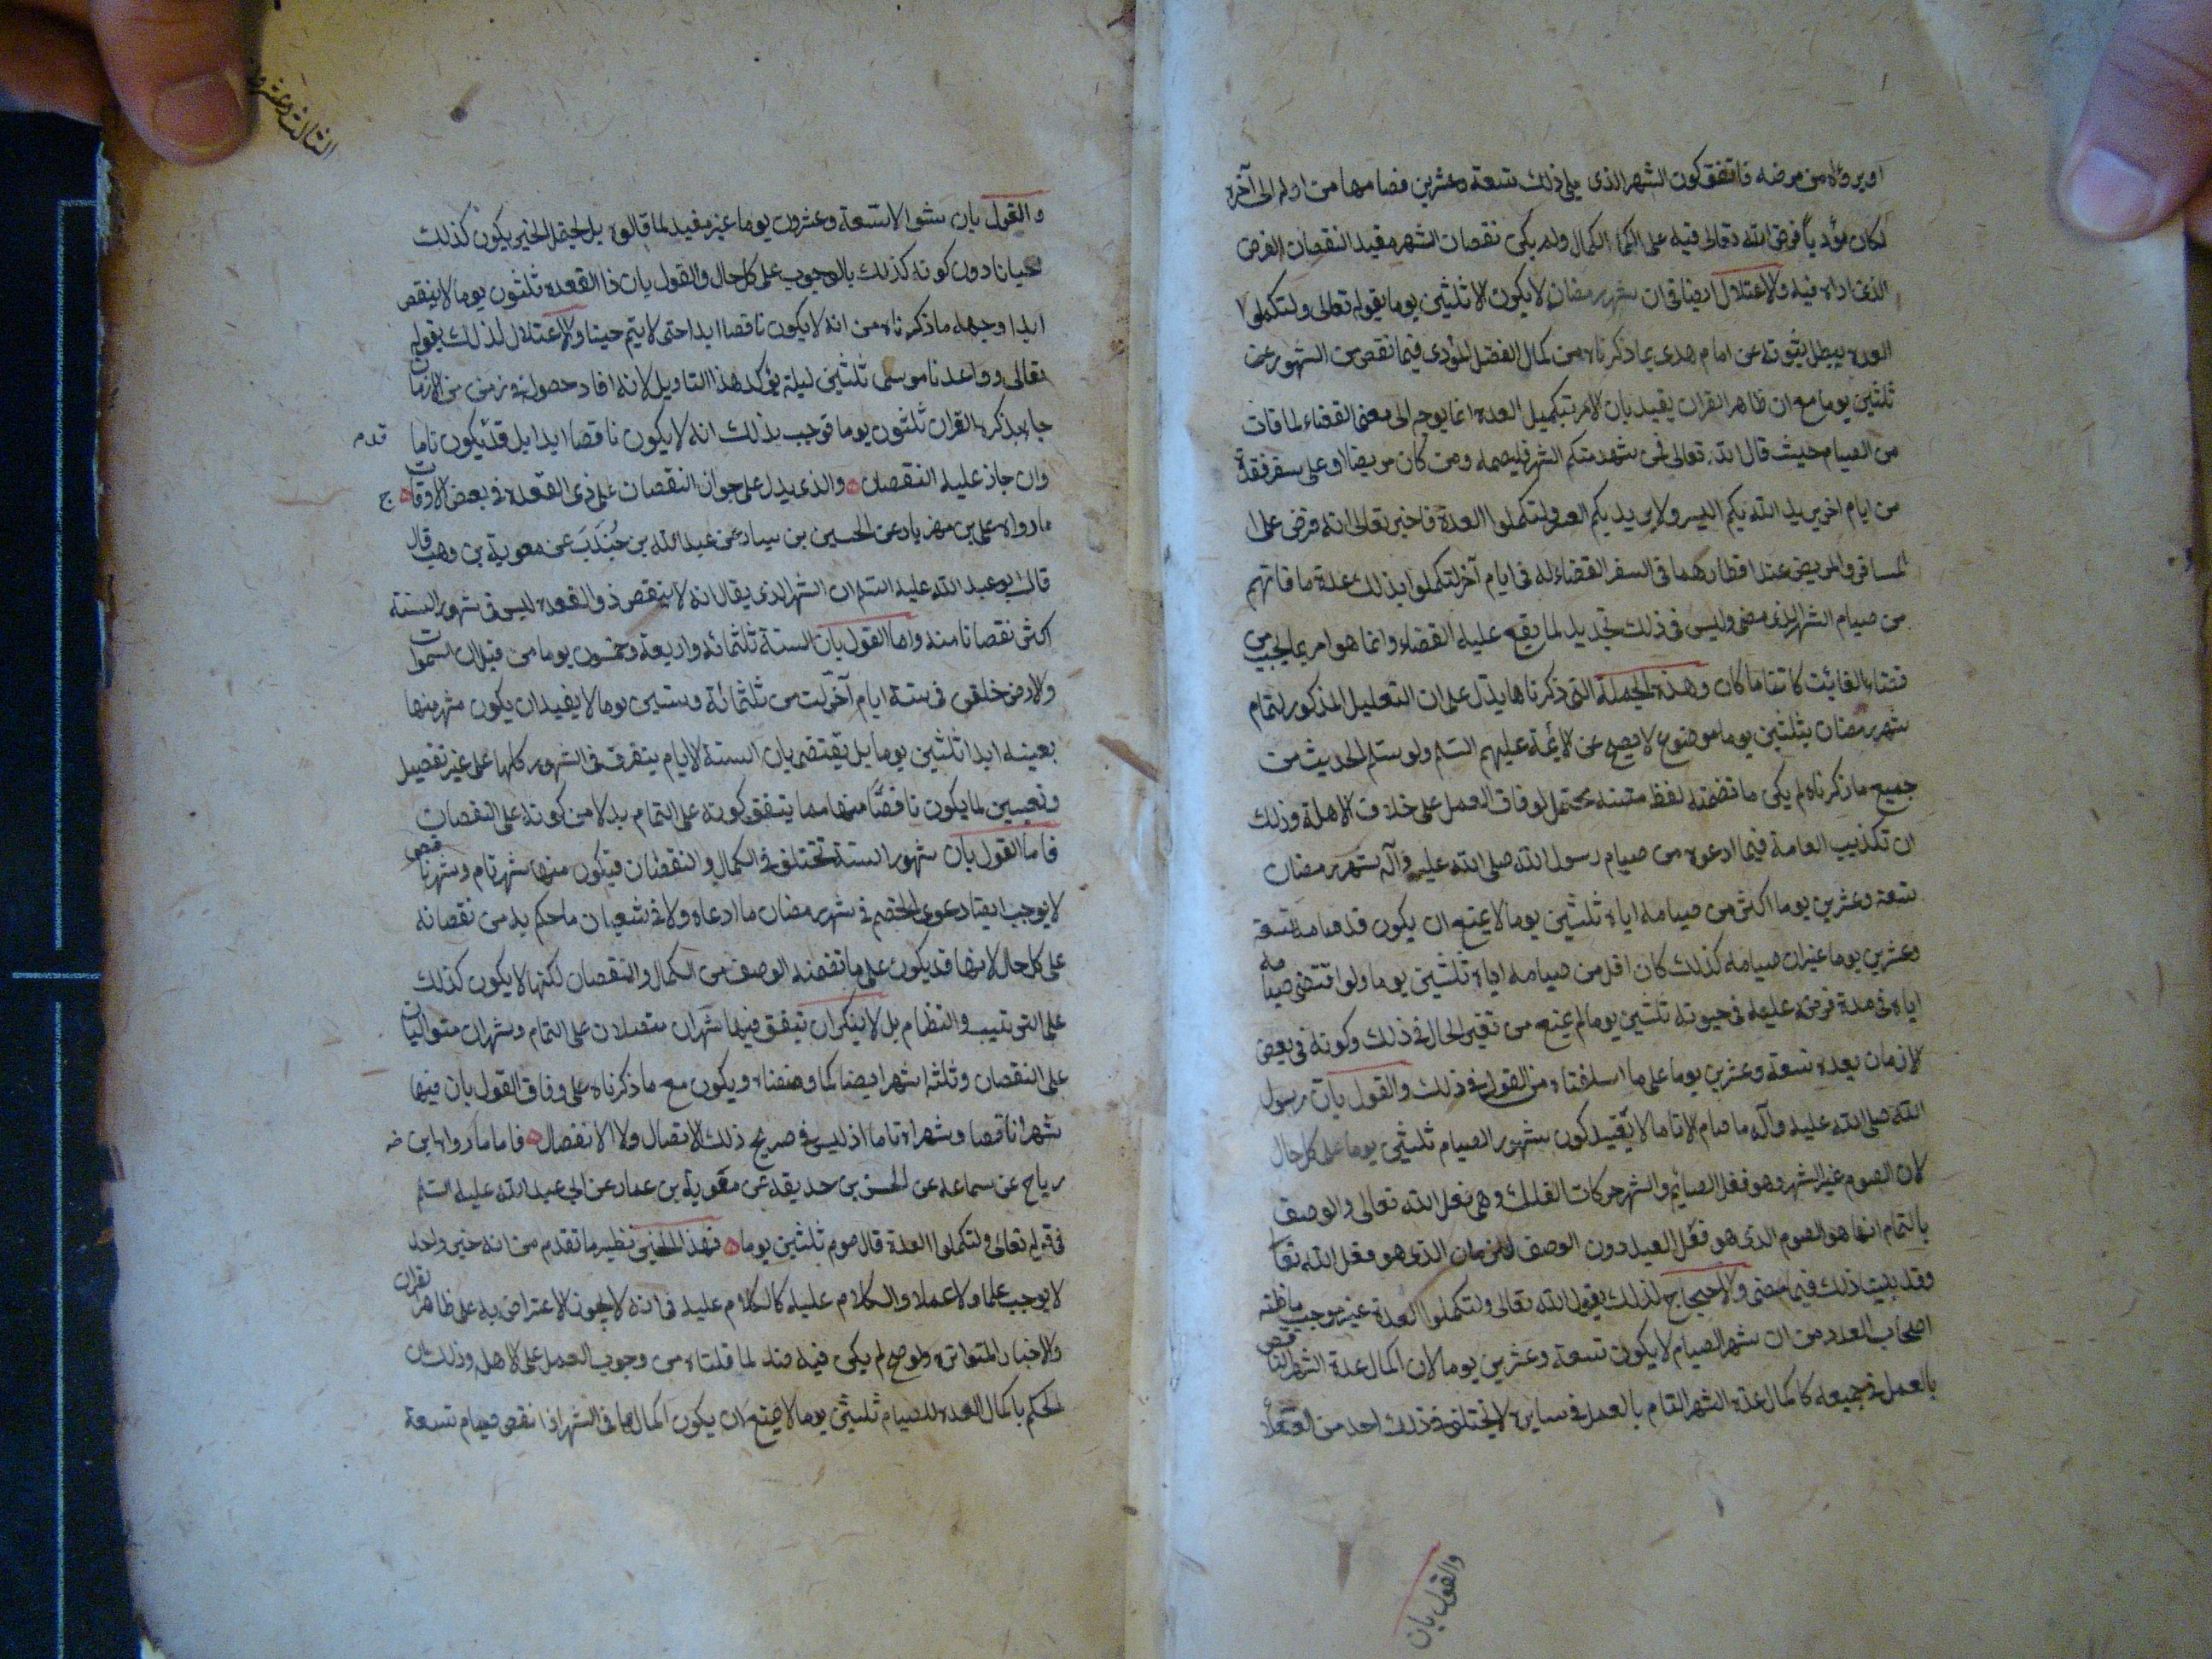 او برؤه من مرضه فاتفق كون الشهر الذى يلى ذلك تسعة وعشرين فصامها من اوله الى آخره
لكان مؤدياً فرض الله تعالى فيه على الكمال ولم يكن نقصان الشهر مفيد النقصان الفرض
الذى اداه فيه والاعتلال ايضا فى ان شهر رمضان لا يكون الا ثلثين يوما بقوله تعالى ولتكملوا
العده يبطل بثبوته عن امام هدى بما ذكرناه من كمال الفضل المؤدى فيما نقص من الشهور عن
ثلثين يوما مع ان ظاهر القران يفيد بان الامر بتكميل العده انما يوجه الى معنى القضاء لما فات
من الصيام حيث قال الله تعالى فمن شهد منكم الشهر فليصمه ومن كان مريضا او على سفر فعدة
من ايام اخر يريد الله بكم اليسر ولا يريد بكم العسر ولتكملوا العدة فاخبر تعالى انه فرض على
المسافر والمريض عند افطارهما فى السفر القضاء له فى ايام آخر لتكملوا بذلك عدة ما فاتهم
من صيام الشهر الذى مضى وليس فى ذلك تحديد لما يقع عليه القضاء وانما هو امر بما يجب من
قضاء الفائت كائنا ما كان وهذه الجملة التى ذكرناها يدل على ان التعليل المذكور لتمام
شهر رمضان بثلثين يوما موضوع لا يصح عن الائمة عليهم السلم ولو سلم الحديث من
جميع ما ذكرناه لم يكن ما تضمنه لفظ متنه محتمل لوفاق العمل على خلاف الاهلة وذلك
ان تكذيب العامة فيما ادعوه من صيام رسول الله صلى الله عليه وآله شهر رمضان
تسعة وعشرين يوما اكثر من صيامه اياه ثلثين يوما لا يمتنع ان يكون قد صامه تسعة
وعشرين يوما غير ان صيامه كذلك كان اقل من صيامه اياه ثلثين يوما ولو اقتضى صيامه
اياه فى مدة فرضه عليه فى حيوته ثلثين يوما لم يمنع من تغير الحال فى ذلك وكونه فى بعض
الازمان بعده تسعة وعشرين يوما على ما اسلفناه من القول فى ذلك والقول بان رسول
الله صلى الله عليه وآله ما صام الا تاما لا يفيد كون شهور الصيام ثلثين يوما على كل حال
لان الصوم غير الشهر وهو فعل الصائم والشهر حركات الفلك وهى فعل الله تعالى والوصف
بالتمام انما هو للصوم الذى هو فعل العبد دون الوصف للزمان الذى هو فعل الله تعا
وقد بينت ذلك فيما مضى والاحتجاج لذلك بقول الله تعالى ولتكملوا العدة غير موجب ما ظنه
اصحاب العدد من ان شهر الصيام لا يكون تسعة وعشرين يوما لان اكمال عدة الشهر الناقص
بالعمل فى جميعه كاكمال عدة الشهر التام بالعمل فى سايره لا يختلف فى ذلك احد من العقلا
والقول بان
الثالث وعشرون
والقول بان شوالا تسعة وعشرون يوما غير مفيد لما قالوه بل يحتمل الخبر يكون كذلك
احيانا دون كونه كذلك بالوجوب على كل حال والقول بان ذا القعده ثلثون يوما لا ينقص
ابدا وجهه ما ذكرناه من انه لا يكون ناقصا ابدا حتى لا يتم حينا والاعتلال لذلك بقوله
تعالى وواعدنا موسى ثلثين ليلة يؤكد هذا التاويل لانه افاد حصوله فى زمن من الازمان
جاء بذكره القران ثلثون يوما فوجب بذلك انه لا يكون ناقصا ابدا بل قد يكون تاما
قدم
وان جاز عليه النقصان والذى يدل على جواز النقصان على ذى القعدة فى بعض الاوقات
ج
ما رواه على بن مهزيار عن الحسين بن بسار عن عبد الله بن جُندَبَ عن معوية بن وهب قال
قال ابو عبد الله عليه السلم ان الشهر الذى يقال انه لا ينقص ذو القعده ليس فى شهور السنة
اكثر نقصانا منه واما القول بان السنة ثلثمائة واربعة وخمسون يوما من قبل ان السموات
والارض خلقن فى ستة ايام آخرلت من ثلثمائة وستين يوما لا يفيد ان يكون شهر منها
بعينه ابدا ثلثين يوما بل يقتضى بان الستة الايام يتفرق فى الشهور كلها على غير تفصيل
وتعيين لما يكون ناقصا منها مما يتفق كونه على التمام بدلا من كونه على النقصان
فاما القول بان شهور السنة تختلف فى الكمال والنقصان فيكون منها شهر تام وشهر ناقص
لا يوجب ايضا دعوى الخصم فى شهر رمضان ما ادعاه ولا فى شعبان ما حكم به من نقصانه
على كل حال لانها قد يكون على ما تضمنه الوصف من الكمال والنقصان لكنها لا يكون كذلك
على الترتيب والنظام بل لا ينكر ان تيفق فيها شهران متصلان على التمام وشهران متواليان
على النقصان وثلثه اشهر ايضا كما وصفناه ويكون مع ما ذكرناه على وفاق القول بان فيها
شهرا ناقصا وشهرا تاما اذ ليس فى صريح ذلك الاتصال ولا الانفصال فاما ما رواه ابن
رياح عن سماعه عن الحسن بن حديفه عن معوية بن عمار عن ابى عبد الله عليه السلم
فى قوله تعالى ولتكملوا العدة قال صوم ثلثين يوما فهذا الخبر نظير ما تقدم من انه خبر واحد
لا يوجب علما ولا عملا والكلام عليه كالكلام عليه فى انه لا يجوز الاعتراض به على ظاهر القران
والاخبار المتواتره ولو صح لم يكن فيه ضد لما قلناه من وجوب العمل على الاهله وذلك ان
الحكم باكمال العده للصيام ثلثين يوما لا يمنع ان يكون اكمالها فى الشهر اذا نقص صيام تسعة